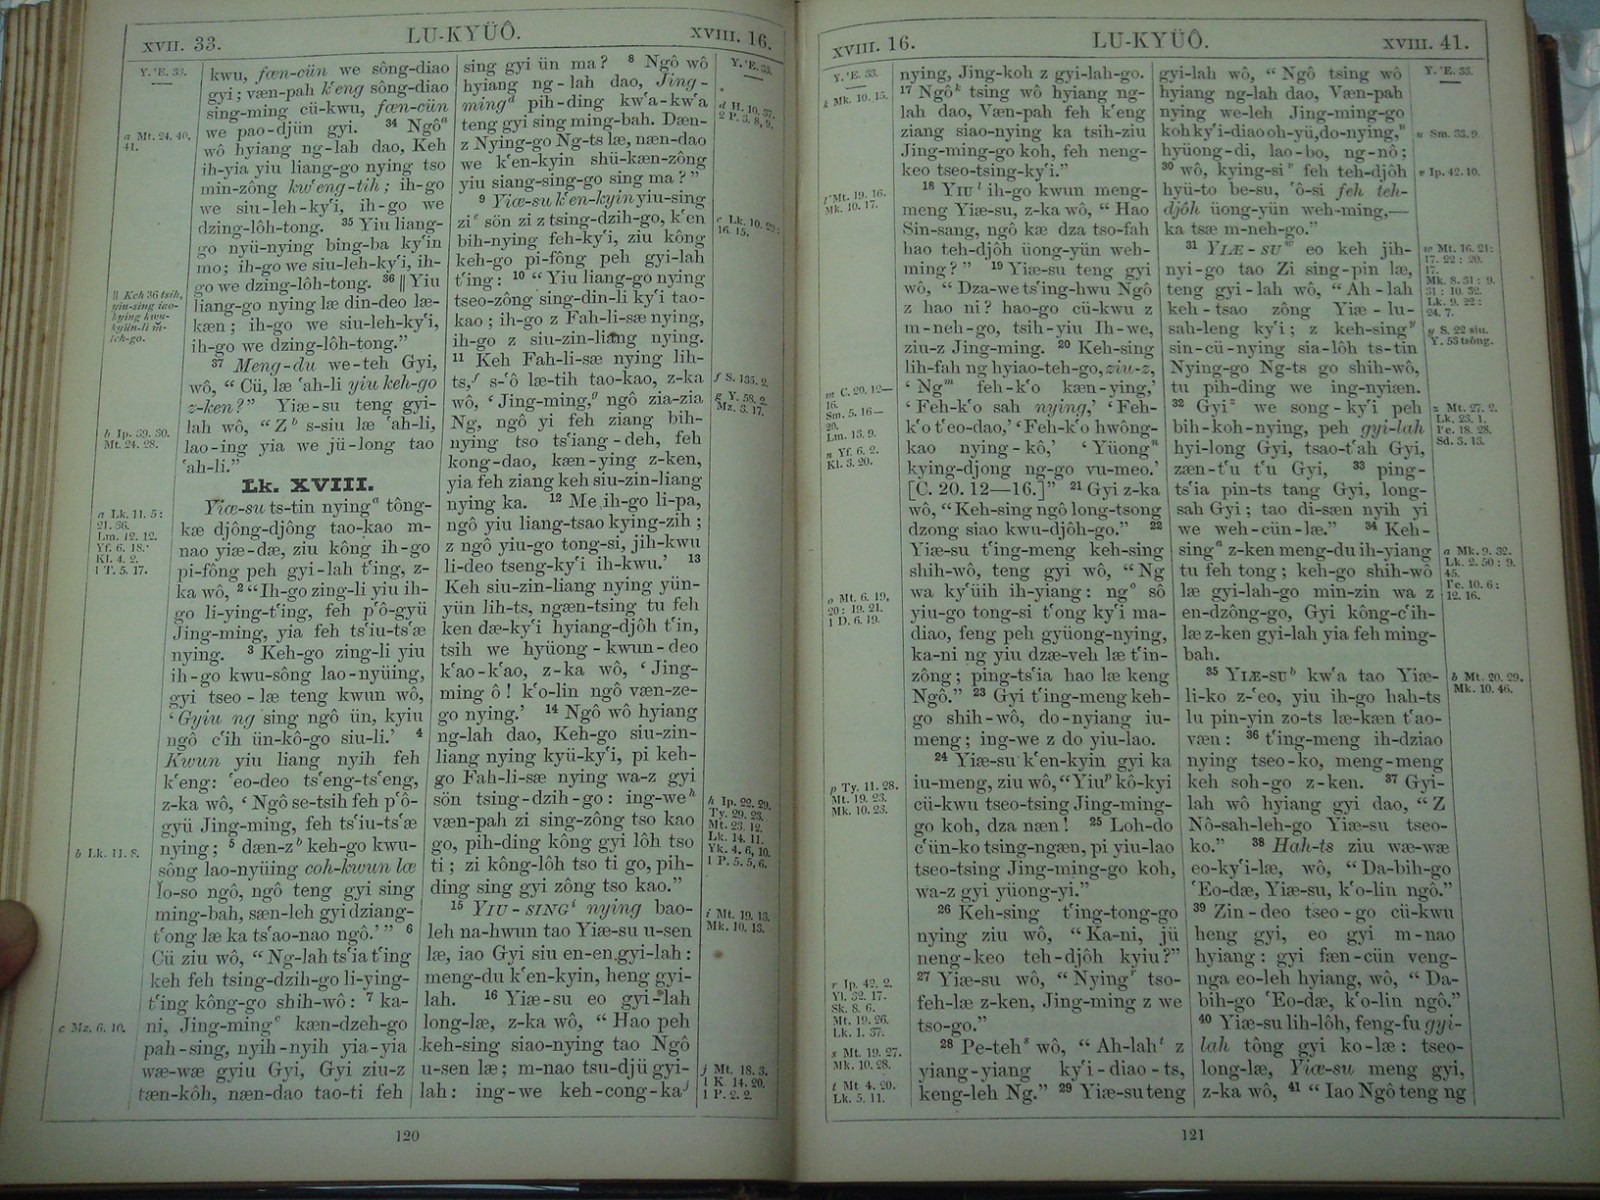 XVII. 33.
LU-KYÜÔ.
XVIII. 16.
Y. 'E. 33.
a Mt. 24. 40,
41.
|| Keh 36 tsih,
yiu-sing iao-
kying kwu-
kyün-li m-
leh-go.
b Ip. 39. 30.
Mt. 24. 28.
a Lk. 11. 5:
21. 36.
Lm. 12. 12.
Yf. 6. 18.
Kl. 4. 2.
1 T. 5. 17.
b Lk. 11. 8.
c Mz. 6. 10.
kwu, fæn-cün we sông-diao
gyi; væn-pah k'eng sông-diao
sing-ming cü-kwu, fæn-cün
we pao-djün gyi. 34 Ngôa
wô hyiang ng-lah dao, Keh
ih-yia yiu liang-go nying tso
min-zông kw'eng-tih; ih-go
we siu-leh-ky'i, ih-go we
dzing-lôh-tong. 35 Yiu liang-
go nyü-nying bing-ba ky'in
mo; ih-go we siu-leh-ky'i, ih-
go we dzing-lôh-tong. 36 || Yiu
liang-go nying læ din-deo læ-
kæn; ih-go we siu-leh-ky'i,
ih-go we dzing-lôh-tong."
37 Meng-du we-teh Gyi,
wô, "Cü, læ 'ah-li yiu keh-go
z-ken?" Yiæ-su teng gyi-
lah wô, "Zb s-siu læ 'ah-li,
lao-ing yia we jü-long tao
'ah-li."
Lk. XVIII.
Yiæ-su ts-tin nyinga tông-
kæ djông-djông tao-kao m-
nao yiæ-dæ, ziu kông ih-go
pi-fông peh gyi-lah t'ing, z-
ka wô, 2 "Ih-go zing-li yiu ih-
go li-ying-t'ing, feh p'ô-gyü
Jing-ming, yia feh ts'iu-ts'æ
nying. 3 Keh-go zing-li yiu
ih-go kwu-sông lao-nyüing,
gyi tseo-læ teng kwun wô,
'Gyiu ng sing ngô ün, kyiu
ngô c'ih ün-kô-go siu-li.' 4
Kwun yiu liang nyih feh
k'eng: 'eo-deo ts'eng-ts'eng,
z-ka wô, 'Ngô se-tsih feh p'ô-
gyü Jing-ming, feh ts'iu-ts'æ
nying; 5 dæn-zb keh-go kwu-
sông lao-nyüing coh-kwun læ
lo-so ngô, ngô teng gyi sing
ming-bah, sæn-leh gyi dziang-
t'ong læ ka ts'ao-nao ngô.'" 6
Cü ziu wô, "Ng-lah ts'ia t'ing
keh feh tsing-dzih-go li-ying-
t'ing kông-go shih-wô: 7 ka-
ni, Jing-mingc kæn-dzeh-go
pah-sing, nyih-nyih yia-yia
wæ-wæ gyiu Gyi, Gyi ziu-z
tæn-kôh, næn-dao tao-ti feh
sing gyi ün ma? 8 Ngô wô
hyiang ng-lah dao, Jing-
mingd pih-ding kw'a-kw'a
teng gyi sing ming-bah. Dæn-
z Nying-go Ng-ts læ, næn-dao
we k'en-kyin shü-kæn-zông
yiu siang-sing-go sing ma?"
9 Yiæ-su k'en-kyin yiu-sing
zie sön zi z tsing-dzih-go, k'en
bih-nying feh-ky'i, ziu kông
keh-go pi-fông peh gyi-lah
t'ing: 10 "Yiu liang-go nying
tseo-zông sing-din-li ky'i tao-
kao; ih-go z Fah-li-sæ nying,
ih-go z siu-zin-liang nying.
11 Keh Fah-li-sæ nying lih-
ts,f s-'ô læ-tih tao-kao, z-ka
wô, 'Jing-ming,g ngô zia-zia
Ng, ngô yi feh ziang bih-
nying tso ts'iang-deh, feh
kong-dao, kæn-ying z-ken,
yia feh ziang keh siu-zin-liang
nying ka. 12 Me ih-go li-pa,
ngô yiu liang-tsao kying-zih;
z ngô yiu-go tong-si, jih-kwu
li-deo tseng-ky'i ih-kwu.' 13
Keh siu-zin-liang nying yün-
yün lih-ts, ngæn-tsing tu feh
ken dæ-ky'i hyiang-djôh t'in,
tsih we hyüong-kwun-deo
k'ao-k'ao, z-ka wô, 'Jing-
ming ô! k'o-lin ngô væn-ze-
go nying.' 14 Ngô wô hyiang
ng-lah dao, Keh-go siu-zin-
liang nying kyü-ky'i, pi keh-
go Fah-li-sæ nying wa-z gyi
sön tsing-dzih-go: ing-weh
væn-pah zi sing-zông tso kao
go, pih-ding kông gyi lôh tso
ti; zi kông-lôh tso ti go, pih-
ding sing gyi zông tso kao."
15 YIU-SINGi nying bao-
leh na-hwun tao Yiæ-su u-sen
læ, iao Gyi siu en-en gyi-lah:
meng-du k'en-kyin, heng gyi-
lah. 16 Yiæ-su eo gyi-lah
long-læ, z-ka wô, "Hao peh
keh-sing siao-nying tao Ngô
u-sen læ; m-nao tsu-djü gyi-
lah: ing-we keh-cong-kaj
Y. 'E. 33.
d H. 10. 37.
2 P. 3. 8, 9.
e Lk. 10. 29:
16. 15.
f S. 135. 2.
g Y. 58. 2.
Mz. 3. 17.
h Ip. 22. 29.
Ty. 29. 23.
Mt. 23. 12.
Lk. 14. 11.
Yk. 4. 6, 10.
1 P. 5. 5, 6.
i Mt. 19. 13.
Mk. 10. 13.
j Mt. 18. 3.
1 K 14. 20.
1 P. 2. 2.
120
XVIII. 16.
LU-KYÜÔ.
XVIII. 41.
Y. 'E. 33.
k Mk. 10. 15.
l Mt. 19. 16.
Mk. 10. 17.
m C. 20. 12—
16.
Sm. 5. 16—
20.
Lm. 13. 9.
n Yf. 6. 2.
Kl. 3. 20.
o Mt. 6. 19,
20: 19. 21.
1 D. 6. 19.
p Ty. 11. 28.
Mt. 19. 23.
Mk. 10. 23.
r Ip. 42. 2.
Yl. 32. 17.
Sk. 8. 6.
Mt. 19. 26.
Lk. 1. 37.
s Mt. 19. 27.
Mk. 10. 28.
t Mt 4. 20.
Lk. 5. 11.
nying, Jing-koh z gyi-lah-go.
17 Ngôk tsing wô hyiang ng-
lah dao, Væn-pah feh k'eng
ziang siao-nying ka tsih-ziu
Jing-ming-go koh, feh neng-
keo tseo-tsing-ky'i."
18 YIUl ih-go kwun meng-
meng Yiæ-su, z-ka wô, "Hao
Sin-sang, ngô kæ dza tso-fah
hao teh-djôh üong-yün weh-
ming?" 19 Yiæ-su teng gyi
wô, "Dza-we ts'ing-hwu Ngô
z hao ni? hao-go cü-kwu z
m-neh-go, tsih-yiu Ih-we,
ziu-z Jing-ming. 20 Keh-sing
lih-fah ng hyiao-teh-go, ziu-z,
'Ngm feh-k'o kæn-ying,'
'Feh-k'o sah nying,' 'Feh-
k'o t'eo-dao,' 'Feh-k'o hwông-
kao nying-kô,' 'Yüongn
kying-djong ng-go vu-meo.'
[C. 20. 12—16.]" 21 Gyi z-ka
wô, "Keh-sing ngô long-tsong
dzong siao kwu-djôh-go." 22
Yiæ-su t'ing-meng keh-sing
shih-wô, teng gyi wô, "Ng
wa ky'üih ih-yiang: ngo sô
yiu-go tong-si t'ong ky'i ma-
diao, feng peh gyüong-nying,
ka-ni ng yiu dzæ-veh læ t'in-
zông; ping-ts'ia hao læ keng
Ngô." 23 Gyi t'ing-meng keh-
go shih-wô, do-nyiang iu-
meng; ing-we z do yiu-lao.
24 Yiæ-su k'en-kyin gyi ka
iu-meng, ziu wô, "Yiup kô-kyi
cü-kwu tseo-tsing Jing-ming-
go koh, dza næn! 25 Loh-do
c'ün-ko tsing-ngæn, pi yiu-lao
tseo-tsing Jing-ming-go koh,
wa-z gyi yüong-yi."
26 Keh-sing t'ing-tong-go
nying ziu wô, "Ka-ni, jü
neng-keo teh-djôh kyiu?"
27 Yiæ-su wô, "Nyingr tso-
feh-læ z-ken, Jing-ming z we
tso-go."
28 Pe-tehs wô, "Ah-laht z
yiang-yiang ky'i-diao-ts,
keng-leh Ng." 29 Yiæ-su teng
gyi-lah wô, "Ngô tsing wô
hyiang ng-lah dao, Væn-pah
nying we-leh Jing-ming-go
koh ky'i-diao oh-yü, do-nying,u
hyüong-di, lao-bo, ng-nô;
30 wô, kying-siv feh teh-djôh
hyü-to be-su, 'ô-si feh teh-
djôh üong-yün weh-ming,—
ka tsæ m-neh-go."
31 YIÆ-SUw eo keh jih-
nyi-go tao Zi sing-pin læ,
teng gyi-lah wô, "Ah-lah
keh-tsao zông Yiæ-lu-
sah-leng ky'i; z keh-singy
sin-cü-nying sia-lôh ts-tin
Nying-go Ng-ts go shih-wô,
tu pih-ding we ing-nyiæn.
32 Gyiz we song-ky'i peh
bih-koh-nying, peh gyi-lah
hyi-long Gyi, tsao-t'ah Gyi,
zæn-t'u t'u Gyi, 33 ping-
ts'ia pin-ts tang Gyi, long-
sah Gyi; tao di-sæn nyih yi
we weh-cün-læ." 34 Keh-
singa z-ken meng-du ih-yiang
tu feh tong; keh-go shih-wô
læ gyi-lah-go min-zin wa z
en-dzông-go, Gyi kông-c'ih-
læ z-ken gyi-lah yia feh ming-
bah.
35 YIÆ-SUb kw'a tao Yiæ-
li-ko z-'eo, yiu ih-go hah-ts
lu pin-yin zo-ts læ-kæn t'ao-
væn: 36 t'ing-meng ih-dziao
nying tseo-ko, meng-meng
keh soh-go z-ken. 37 Gyi-
lah wô hyiang gyi dao, "Z
Nô-sah-leh-go Yiæ-su tseo-
ko." 38 Hah-ts ziu wæ-wæ
eo-ky'i-læ, wô, "Da-bih-go
'Eo-dæ, Yiæ-su, k'o-lin ngô."
39 Zin-deo tseo-go cü-kwu
heng gyi, eo gyi m-nao
hyiang: gyi fæn-cün veng-
nga eo-leh hyiang, wô, "Da-
bih-go 'Eo-dæ, k'o-lin ngô."
40 Yiæ-su lih-lôh, feng-fu gyi-
lah tông gyi ko-læ: tseo-
long-læ, Yiæ-su meng gyi,
z-ka wô, 41 "Iao Ngô teng ng
Y. 'E. 33.
u Sm. 33. 9.
v Ip. 42. 10.
w Mt. 16. 21:
17. 22: 20.
17.
Mk. 8. 31: 9.
31: 10. 32.
Lk. 9. 22:
24. 7.
y S. 22 siu.
Y. 53 tsông.
z Mt. 27. 2.
Lk. 23. 1.
Yc. 18. 28.
Sd. 3. 13.
a Mk. 9. 32.
Lk. 2. 50: 9.
45.
Yc. 10. 6:
12. 16.
b Mt. 20. 29.
Mk. 10. 46.
121